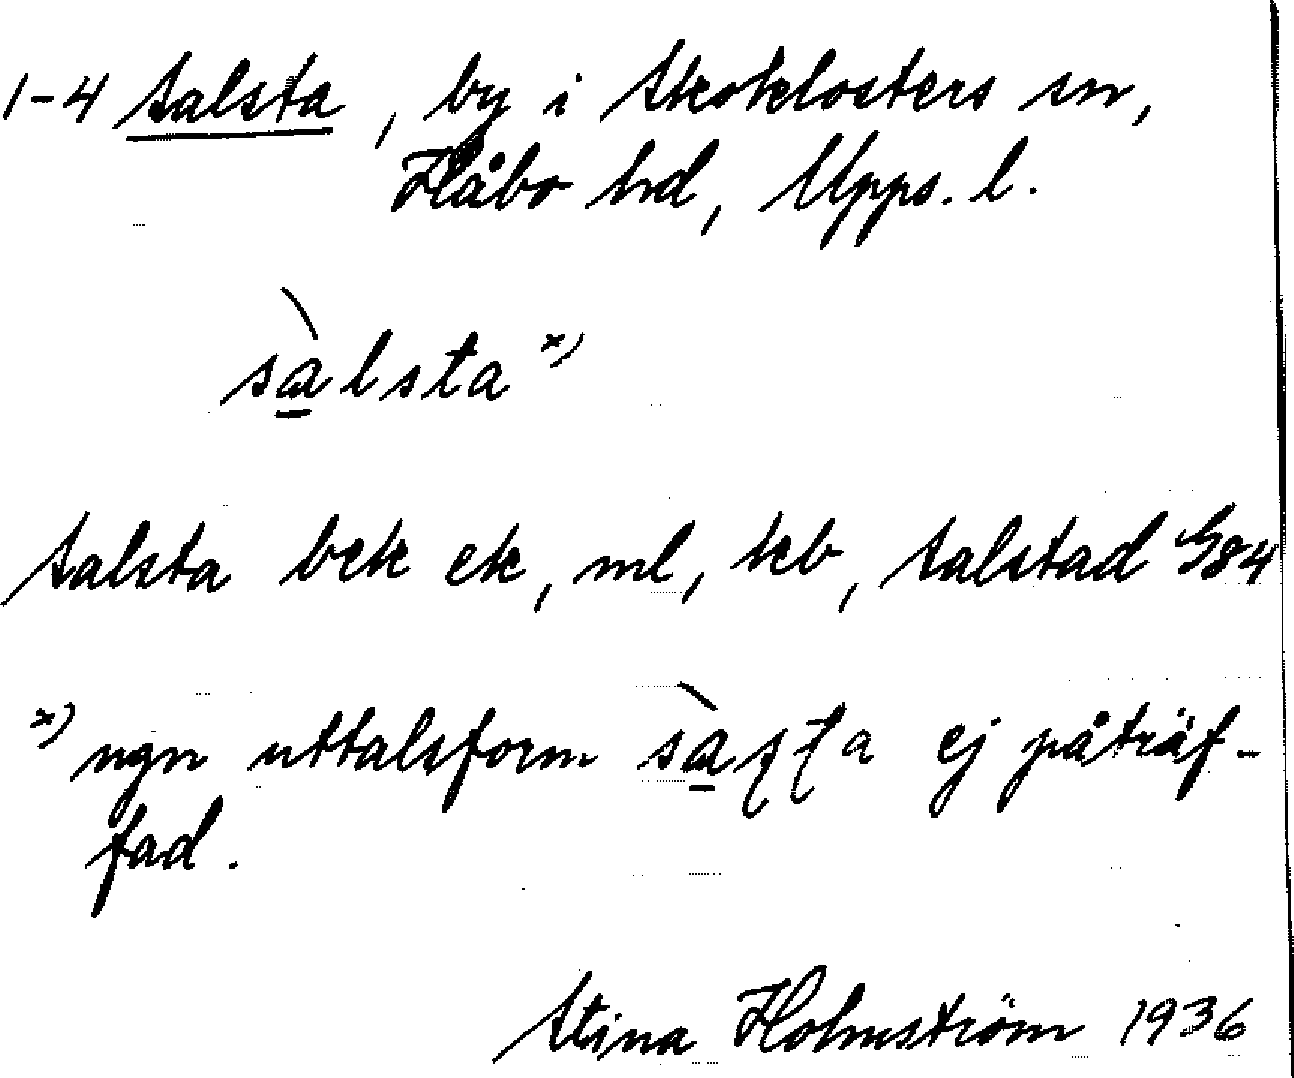 1-4 Salsta, by i Skoklosters sn,
Håbo hd, Upps. l.
sàlsta x)
Salsta bek ek, ml, kb, Salstad G84
x) ngn uttalsform sàʂʈa ej påträf-
fad.
Stina Holmström 1936